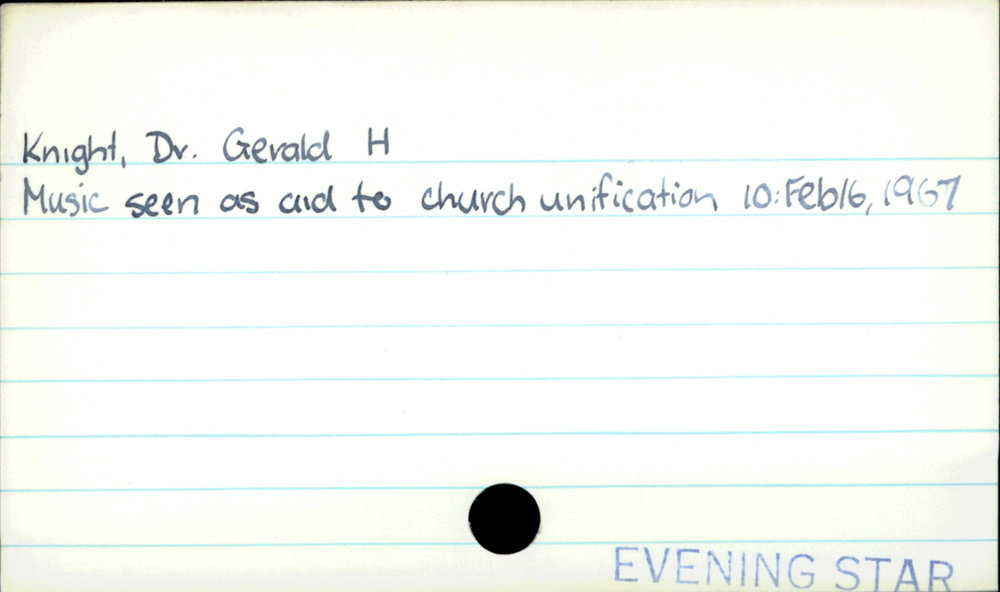 Knight, Dr. Gerald H
Music seen as aid to church unification 10:Feb16, 1967
EVENING STAR